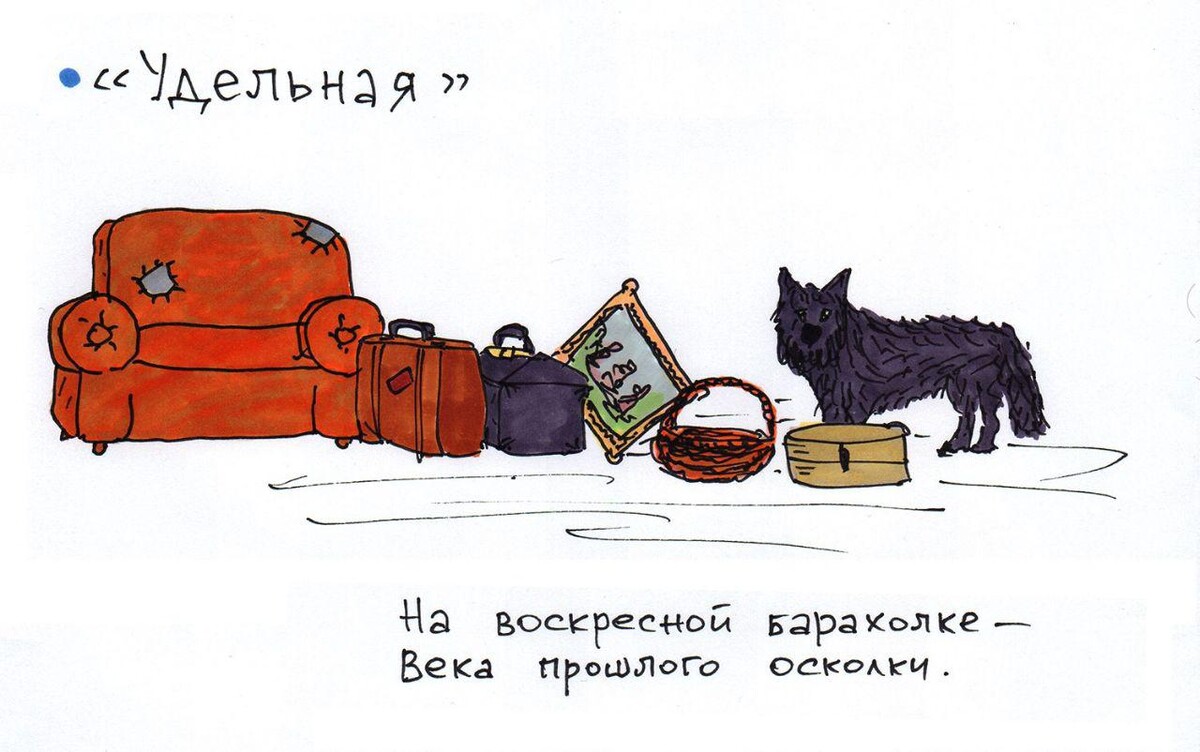 «Удельная»
На воскресной барахолке –
Века прошлого осколки.